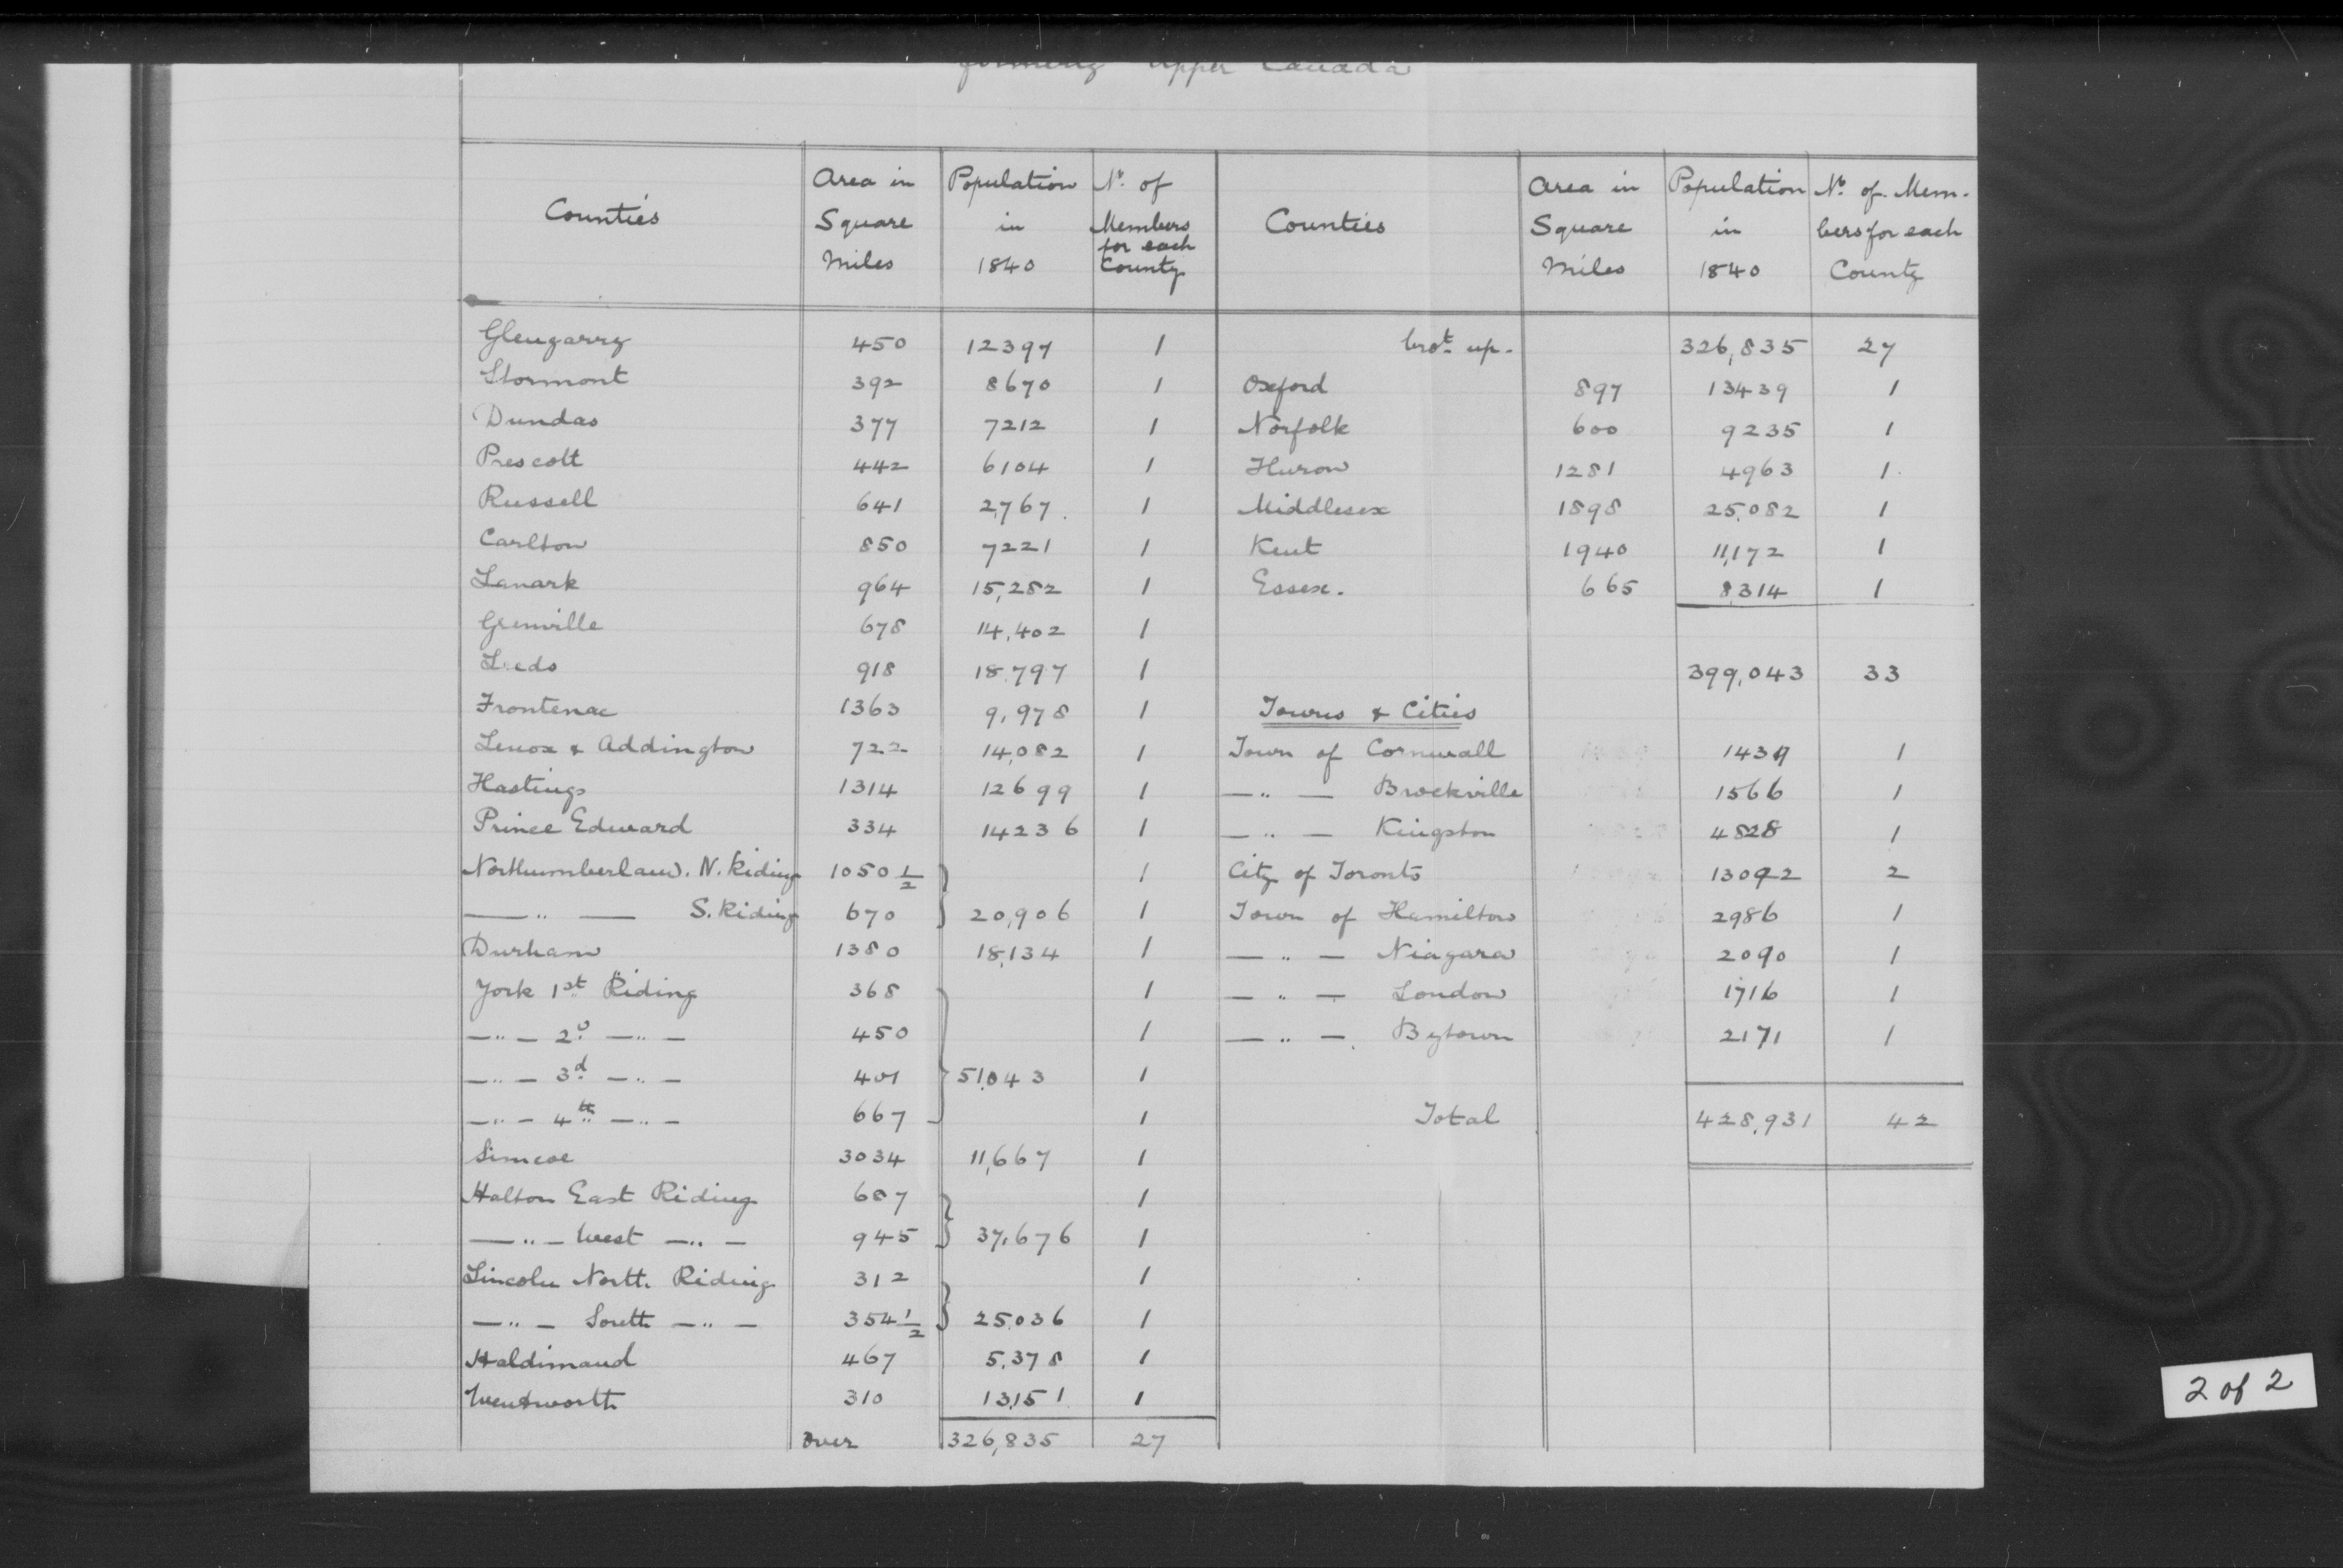 formerly Upper Canada
Counties | Area in Square Miles | Population in 1840 | No. of Members for each County
Glengarry 450 12397 1
Stormont 392 8670 1
Dundas 377 7212 1
Prescott 442 6104 1
Russell 641 2,767 1
Carlton 850 7221 1
Lanark 964 15,282 1
Grenville 678 14,402 1
Leeds 918 18,797 1
Frontenac 1363 9,978 1
Lenox & Addington 722 14,082 1
Hastings 1314 12699 1
Prince Edward 334 14236 1
Northumberland. N. Riding 1050 1/2 1
—〃— S. Riding 670 20,906 1
Durham 1380 18,134 1
York 1st Riding 368 1
—〃— 2d —〃— 450 1
—〃— 3d —〃— 401 51,043 1
—〃— 4th —〃— 667 1
Simcoe 3034 11,667 1
Halton East Riding 687 1
—〃— West —〃— 945 37,676 1
Lincoln North Riding 312 1
—〃— South —〃— 354 1/2 25,036 1
Haldimand 467 5,378 1
Wentworth 310 13,151 1
Over 326,835 27
Counties | Area in Square Miles | Population in 1840 | No. of Members for each County
brot. up. 326,835 27
Oxford 897 13439 1
Norfolk 600 9235 1
Huron 1281 4963 1
Middlesex 1898 25,082 1
Kent 1940 11,172 1
Essex. 665 8,314 1
399,043 33
Towns & Cities
Town of Cornwall 1439 1
—〃— Brockville 1566 1
—〃— Kingston 4828 1
City of Toronto 13092 2
Town of Hamilton 2986 1
—〃— Niagara 2090 1
—〃— London 1716 1
—〃— Bytown 2171 1
Total 428,931 42
2 of 2